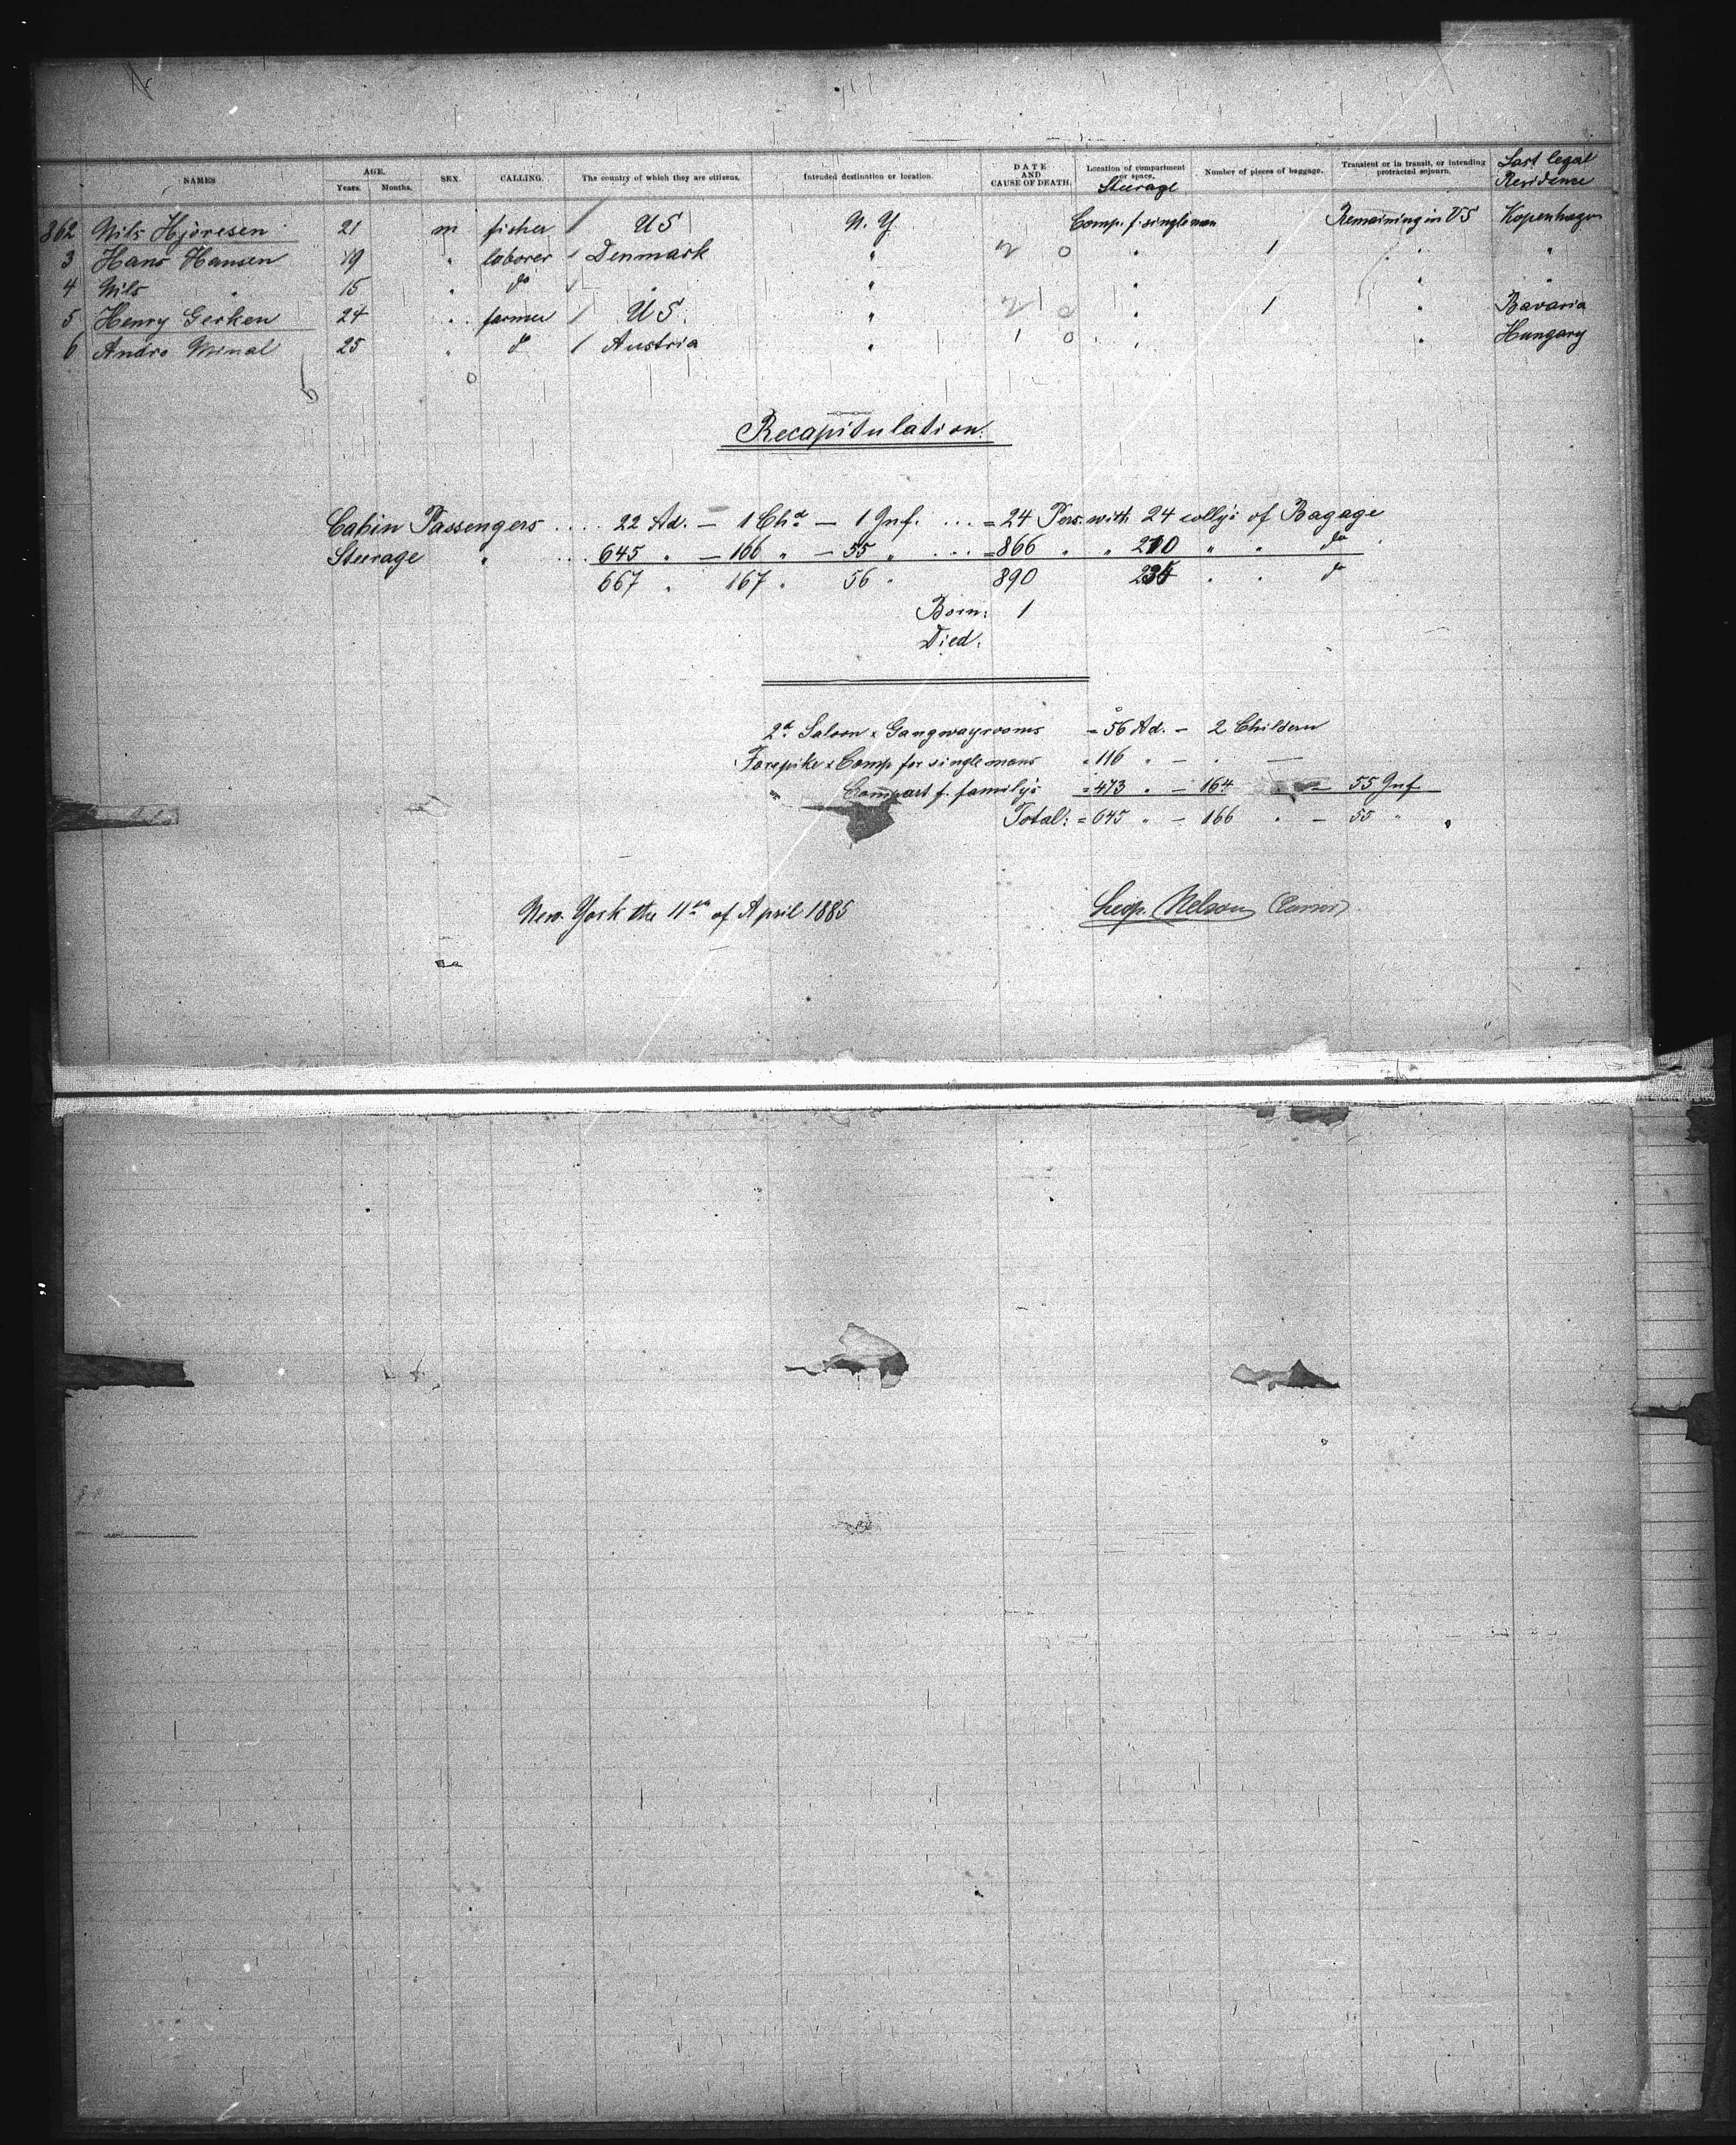 NAMES AGE. Years. Months. SEX. CALLING. The country of which they are citizens. Intended destination or location. DATE AND CAUSE OF DEATH. Location of compartment or space. Steerage Number of pieces of baggage. Transient or in transit, or intending protracted sojourn. Last legal Residence
862 Nils Hjoresen 21 m fisher 1 US N.Y. Comp. f. singleman Remaining in US Kopenhagen
3 Hans Hansen 19 " laborer 1 Denmark " 2 0 " 1 " "
4 Nils " 15 " do 1 " " " " "
5 Henry Gerken 24 " farmer 1 US. " 2 0 " 1 " Bavaria
6 Andro Minal 25 " do 1 Austria " 1 0 " " Hungary
Recapitulation.
Cabin Passengers .... 22 Ad. — 1 Chd — 1 Inf. ... = 24 Pers. with 24 collys of Bagage
Steerage " ... 645 " — 166 " — 55 " ... = 866 " " 210 " " do
667 " 167 " 56 " 890 234 " " do
Born: 1
Died:
2d Saloon & Gangwayrooms = 56 Ad. — 2 Childern
Forepike & Comp for singlemans " 116 " — " —
" Compart f. family's = 473 " — 164 — 55 Inf
Total: = 645 " — 166 " — 55 "
New-York the 11th of April 1885
Nelson